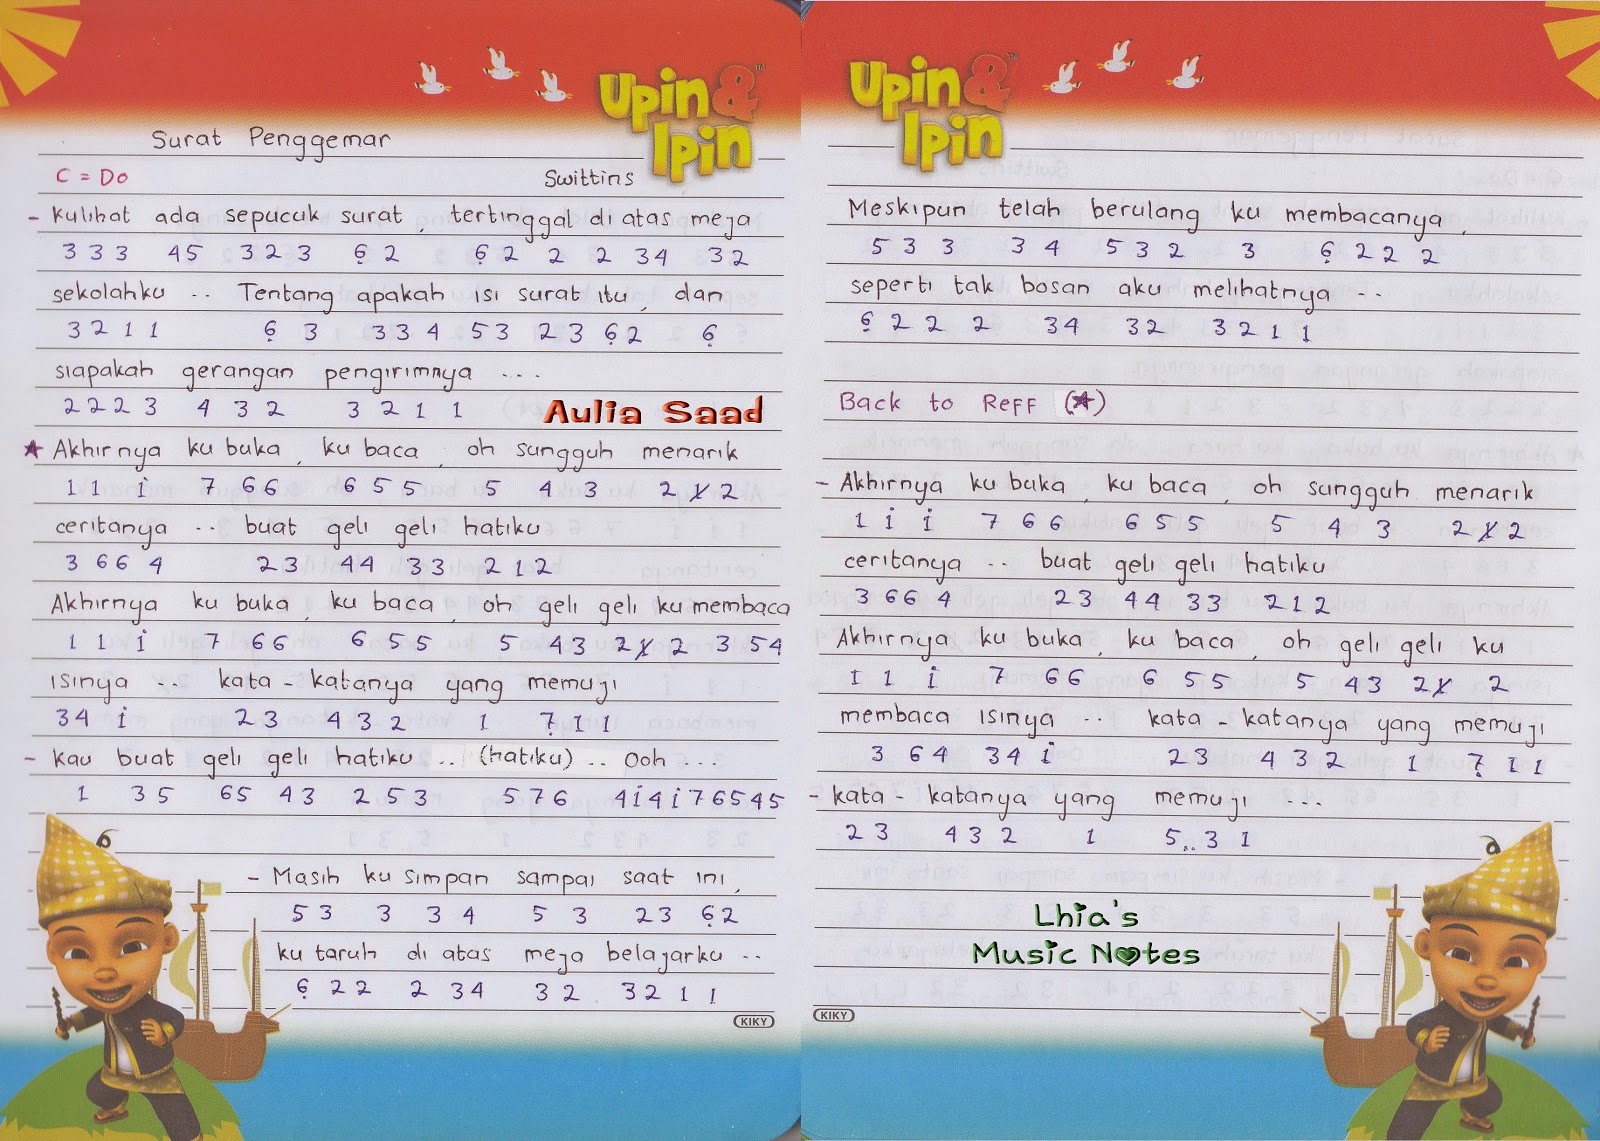 Upin & Ipin™
Surat Penggemar
C = Do
Swittins
- Kulihat ada sepucuk surat, tertinggal di atas meja
3 3 3 45 3 2 3 6̣ 2 6̣ 2 2 2 34 32
sekolahku .. Tentang apakah isi surat itu, dan
3 2 1 1 6̣ 3 3 3 4 53 2 3 6̣ 2 6̣
siapakah gerangan pengirimnya ...
2 2 2 3 4 3 2 3 2 1 1
Aulia Saad
★ Akhirnya ku buka, ku baca, oh sungguh menarik
1 1 i 7 66 6 5 5 5 4 3 2 1̸ 2
ceritanya .. buat geli geli hatiku
3 66 4 23 44 33 2 1 2
Akhirnya ku buka, ku baca, oh geli geli ku membaca
1 1 i 7 66 6 5 5 5 43 21̸ 2 3 54
isinya .. kata - katanya yang memuji
34 i 23 4 3 2 1 7̣ 1 1
- Kau buat geli geli hatiku .. (hatiku) .. Ooh ...
1 35 65 43 2 5 3 5 7 6 4i4i76545
- Masih ku simpan sampai saat ini,
5 3 3 3 4 5 3 23 6̣2
ku taruh di atas meja belajarku ..
6̣ 22 2 34 32 32 1 1
KIKY
Upin & Ipin™
Meskipun telah berulang ku membacanya,
5 3 3 3 4 5 3 2 3 6̣ 2 2 2
seperti tak bosan aku melihatnya ..
6̣ 2 2 2 34 32 3 2 1 1
Back to Reff (★)
- Akhirnya ku buka, ku baca, oh sungguh menarik
1 i i 7 66 6 5 5 5 4 3 2 1̸ 2
ceritanya .. buat geli geli hatiku
3 66 4 23 44 33 2 1 2
Akhirnya ku buka, ku baca, oh geli geli ku
1 1 i 7 66 6 55 5 43 21̸ 2
membaca isinya .. kata - katanya yang memuji
3 64 34 i 23 4 3 2 1 7̣ 1 1
- kata - katanya yang memuji ...
2 3 4 3 2 1 5.. 3 1
Lhia's
Music Notes
KIKY